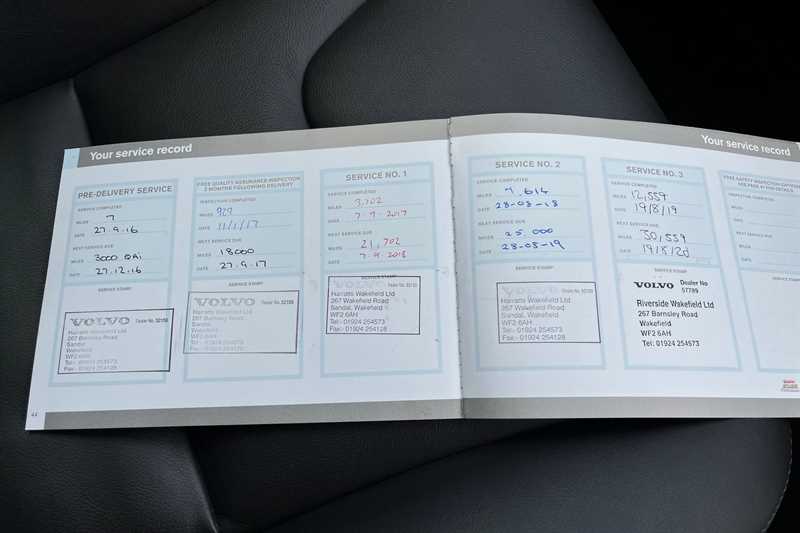 Your service record
PRE-DELIVERY SERVICE
SERVICE COMPLETED
MILES 7
DATE 27.9.16
NEXT SERVICE DUE
MILES 3000 QAI
DATE 27.12.16
SERVICE STAMP
VOLVO Dealer No.
Harratts Wakefield Ltd
267 Barnsley Road
Sandal
Wakefield
WF2 6AH
Tel:- 01924 254573
Fax:- 01924 254128
FREE QUALITY ASSURANCE INSPECTION
3 MONTHS FOLLOWING DELIVERY
INSPECTION COMPLETED
MILES 929
DATE 11/1/17
NEXT SERVICE DUE
MILES 18000
DATE 27.9.17
SERVICE STAMP
VOLVO Dealer No.
Harratts Wakefield Ltd
267 Barnsley Road
Sandal
Wakefield
WF2 6AH
Tel:- 01924 254573
Fax:- 01924 254128
SERVICE NO. 1
SERVICE COMPLETED
MILES 3,702
DATE 7-9-2017
NEXT SERVICE DUE
MILES 21,702
DATE 7-9-2018
SERVICE STAMP
Harratts Wakefield Ltd
267 Wakefield Road
Sandal, Wakefield
WF2 6AH
Tel:- 01924 254573
Fax:- 01924 254128
44
Your service record
SERVICE NO. 2
SERVICE COMPLETED
MILES 7,614
DATE 28-08-18
NEXT SERVICE DUE
MILES 25,000
DATE 28-08-19
SERVICE STAMP
VOLVO Dealer No.
Harratts Wakefield Ltd
267 Wakefield Road
Sandal, Wakefield
WF2 6AH
Tel:- 01924 254573
Fax:- 01924 254128
SERVICE NO. 3
SERVICE COMPLETED
MILES 12,559
DATE 19/8/19
NEXT SERVICE DUE
MILES 30,559
DATE 19/8/20
SERVICE STAMP
VOLVO Dealer No
57789
Riverside Wakefield Ltd
267 Barnsley Road
Wakefield
WF2 6AH
Tel: 01924 254573
INSPECTION COMPLETED
MILES
DATE
NEXT SERVICE DUE
MILES
DATE
SERVICE